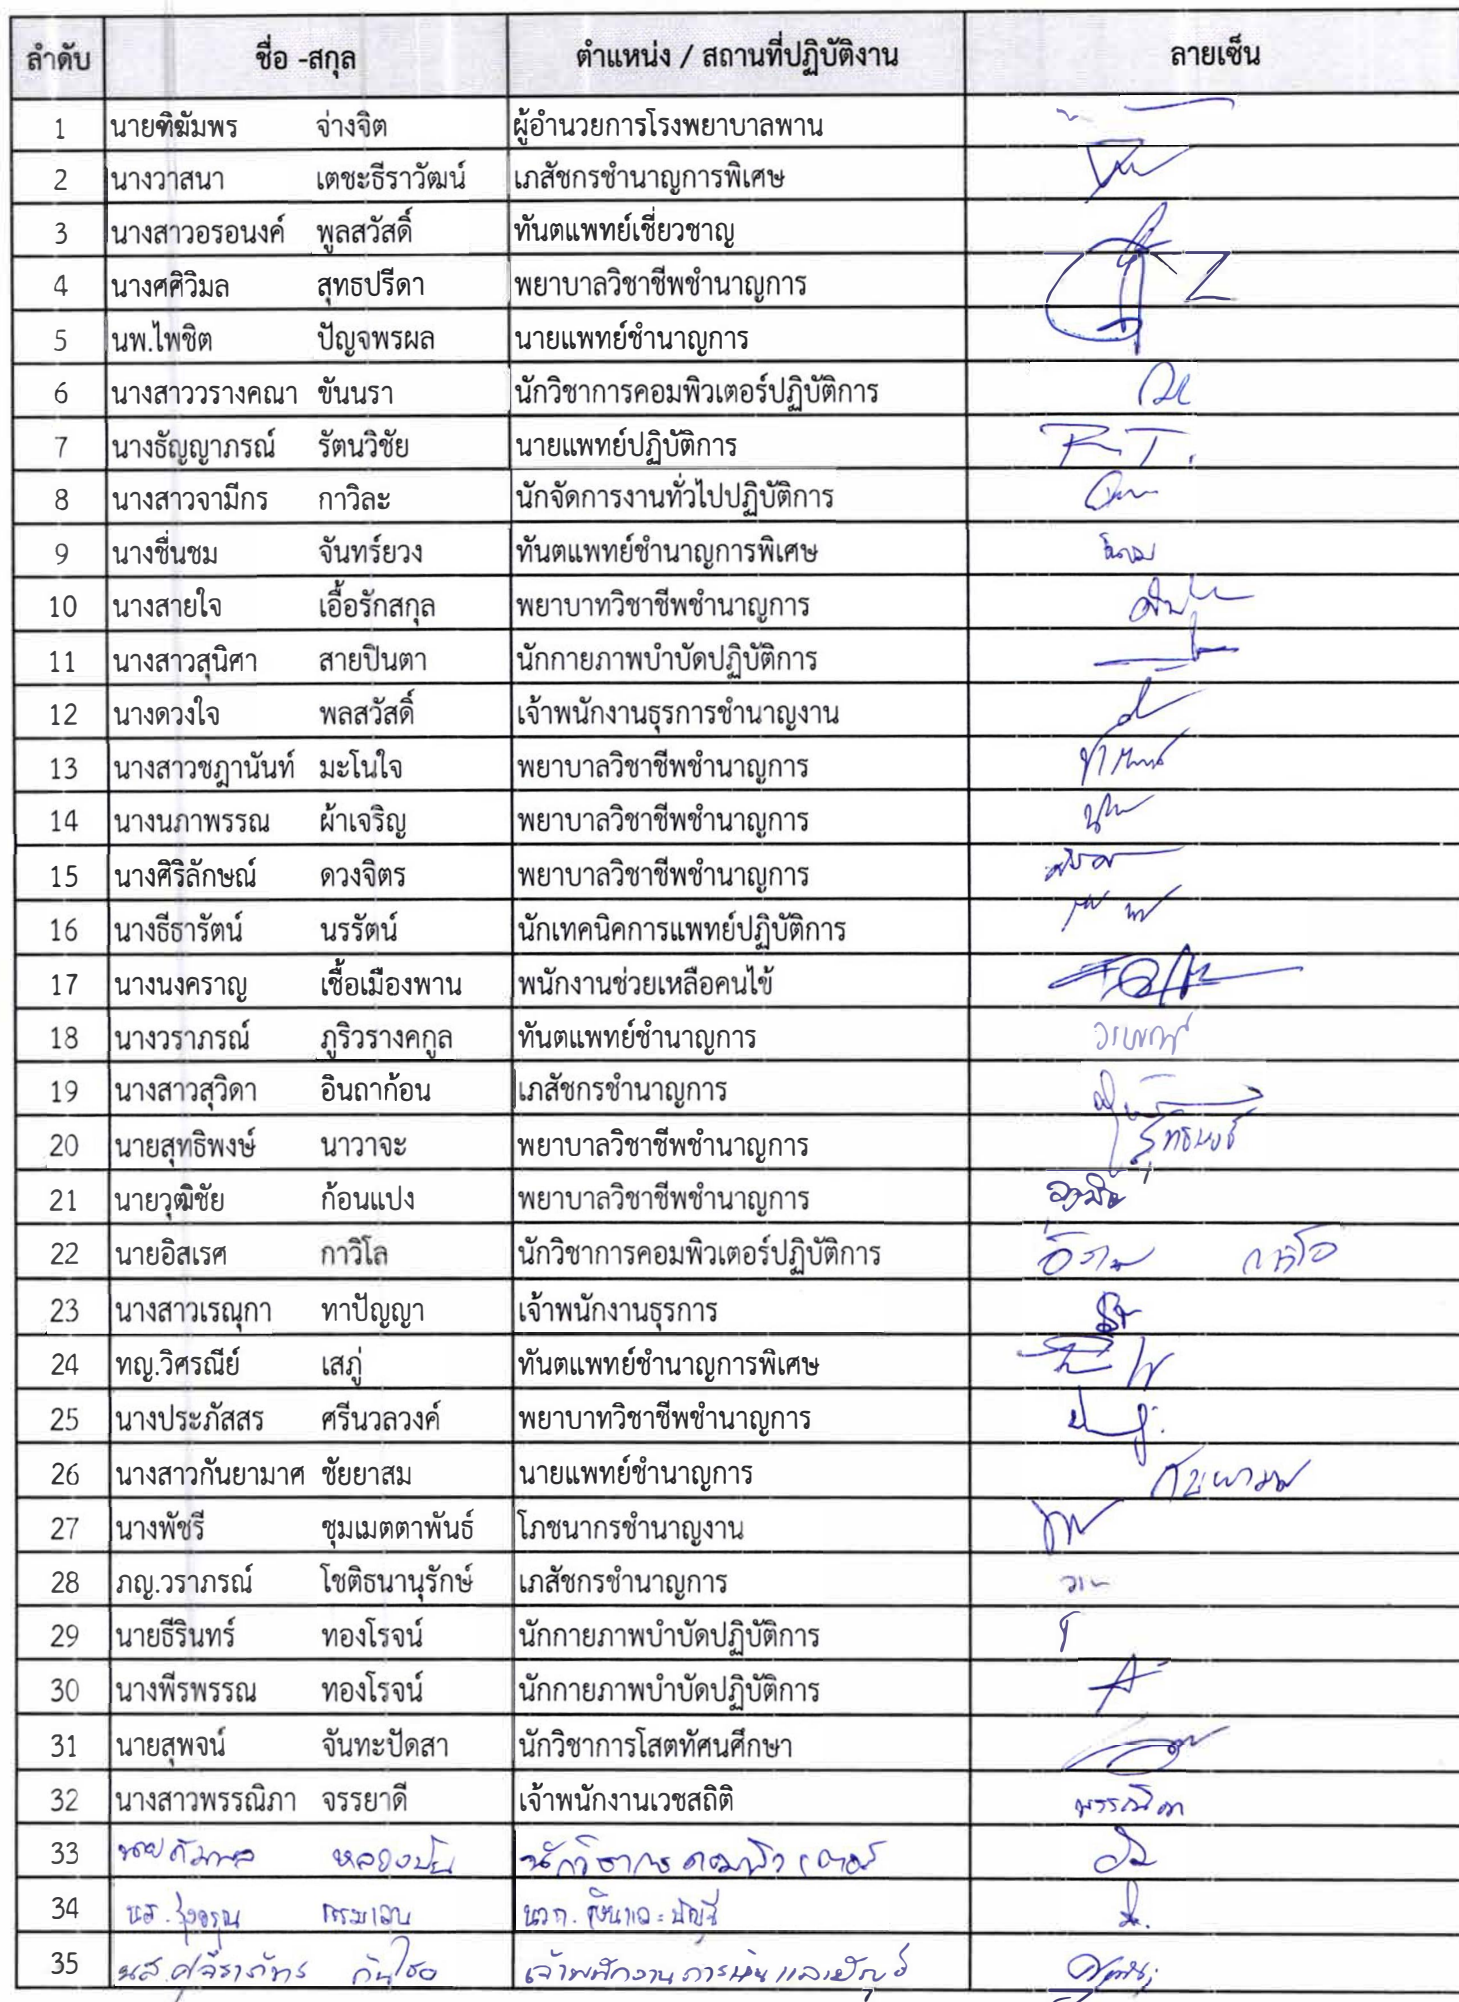 ลำดับ ชื่อ -สกุล ตำแหน่ง / สถานที่ปฏิบัติงาน ลายเซ็น
1 นายฑิฆัมพร จ่างจิต ผู้อำนวยการโรงพยาบาลพาน
2 นางวาสนา เตชะธีราวัฒน์ เภสัชกรชำนาญการพิเศษ
3 นางสาวอรอนงค์ พูลสวัสดิ์ ทันตแพทย์เชี่ยวชาญ
4 นางศศิวิมล สุทธปรีดา พยาบาลวิชาชีพชำนาญการ
5 นพ.ไพชิต ปัญจพรผล นายแพทย์ชำนาญการ
6 นางสาววรางคณา ขันนรา นักวิชาการคอมพิวเตอร์ปฏิบัติการ
7 นางธัญญาภรณ์ รัตนวิชัย นายแพทย์ปฏิบัติการ R.T.
8 นางสาวจามีกร กาวิละ นักจัดการงานทั่วไปปฏิบัติการ
9 นางชื่นชม จันทร์ยวง ทันตแพทย์ชำนาญการพิเศษ
10 นางสายใจ เอื้อรักสกุล พยาบาทวิชาชีพชำนาญการ
11 นางสาวสุนิศา สายปินตา นักกายภาพบำบัดปฏิบัติการ
12 นางดวงใจ พลสวัสดิ์ เจ้าพนักงานธุรการชำนาญงาน
13 นางสาวชฎานันท์ มะโนใจ พยาบาลวิชาชีพชำนาญการ
14 นางนภาพรรณ ผ้าเจริญ พยาบาลวิชาชีพชำนาญการ
15 นางศิริลักษณ์ ดวงจิตร พยาบาลวิชาชีพชำนาญการ
16 นางธีธารัตน์ นรรัตน์ นักเทคนิคการแพทย์ปฏิบัติการ
17 นางนงคราญ เชื้อเมืองพาน พนักงานช่วยเหลือคนไข้
18 นางวราภรณ์ ภูริวรางคกูล ทันตแพทย์ชำนาญการ วราภรณ์
19 นางสาวสุวิดา อินถาก้อน เภสัชกรชำนาญการ
20 นายสุทธิพงษ์ นาวาจะ พยาบาลวิชาชีพชำนาญการ สุทธิพงษ์
21 นายวุฒิชัย ก้อนแปง พยาบาลวิชาชีพชำนาญการ
22 นายอิสเรศ กาวิโล นักวิชาการคอมพิวเตอร์ปฏิบัติการ
23 นางสาวเรณุกา ทาปัญญา เจ้าพนักงานธุรการ
24 ทญ.วิศรณีย์ เสภู่ ทันตแพทย์ชำนาญการพิเศษ
25 นางประภัสสร ศรีนวลวงค์ พยาบาทวิชาชีพชำนาญการ
26 นางสาวกันยามาศ ชัยยาสม นายแพทย์ชำนาญการ กันยามาศ
27 นางพัชรี ชุมเมตตาพันธ์ โภชนากรชำนาญงาน
28 ภญ.วราภรณ์ โชติธนานุรักษ์ เภสัชกรชำนาญการ
29 นายธีรินทร์ ทองโรจน์ นักกายภาพบำบัดปฏิบัติการ
30 นางพีรพรรณ ทองโรจน์ นักกายภาพบำบัดปฏิบัติการ
31 นายสุพจน์ จันทะปัดสา นักวิชาการโสตทัศนศึกษา
32 นางสาวพรรณิภา จรรยาดี เจ้าพนักงานเวชสถิติ พรรณิภา
33 นาย นักวิชาการคอมพิวเตอร์
34 นส. รุ่งอรุณ นวก. เงินและบัญชี
35 นส. เจ้าพนักงานการเงินและบัญชี